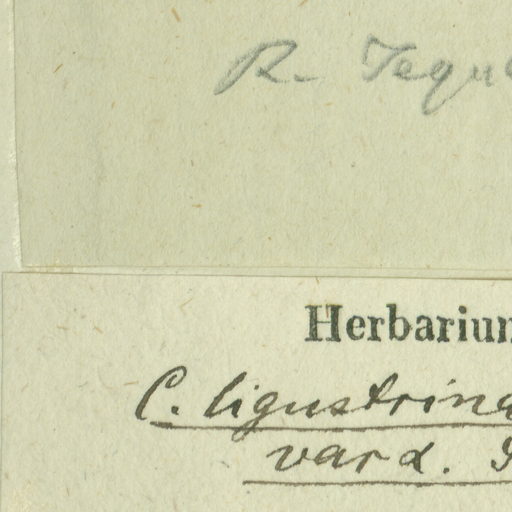 R. Tequ
Herbarium
C. ligustrina
var α.